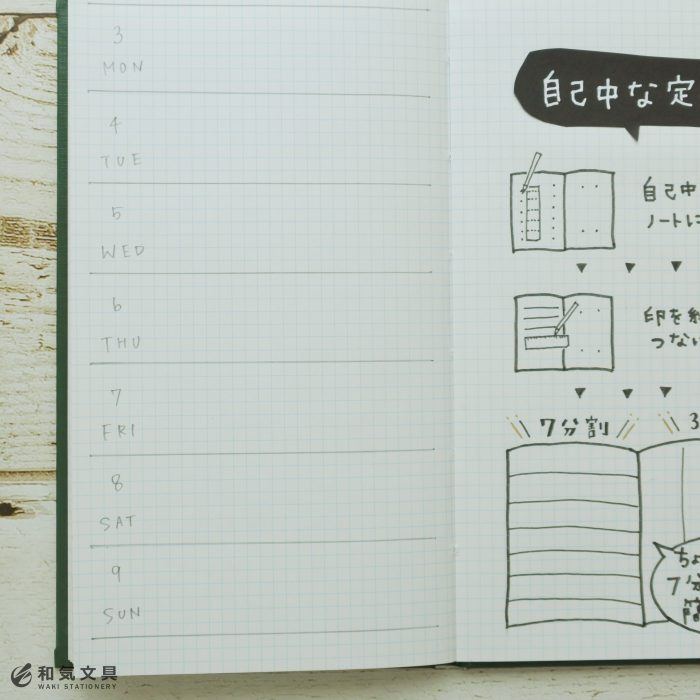 3
MON
4
TUE
5
WED
6
THU
7
FRI
8
SAT
9
SUN
自己中な定
自己中
ノートに
印を
つない
7分割
3
ちょ
7分
簡
和気文具
WAKI STATIONERY